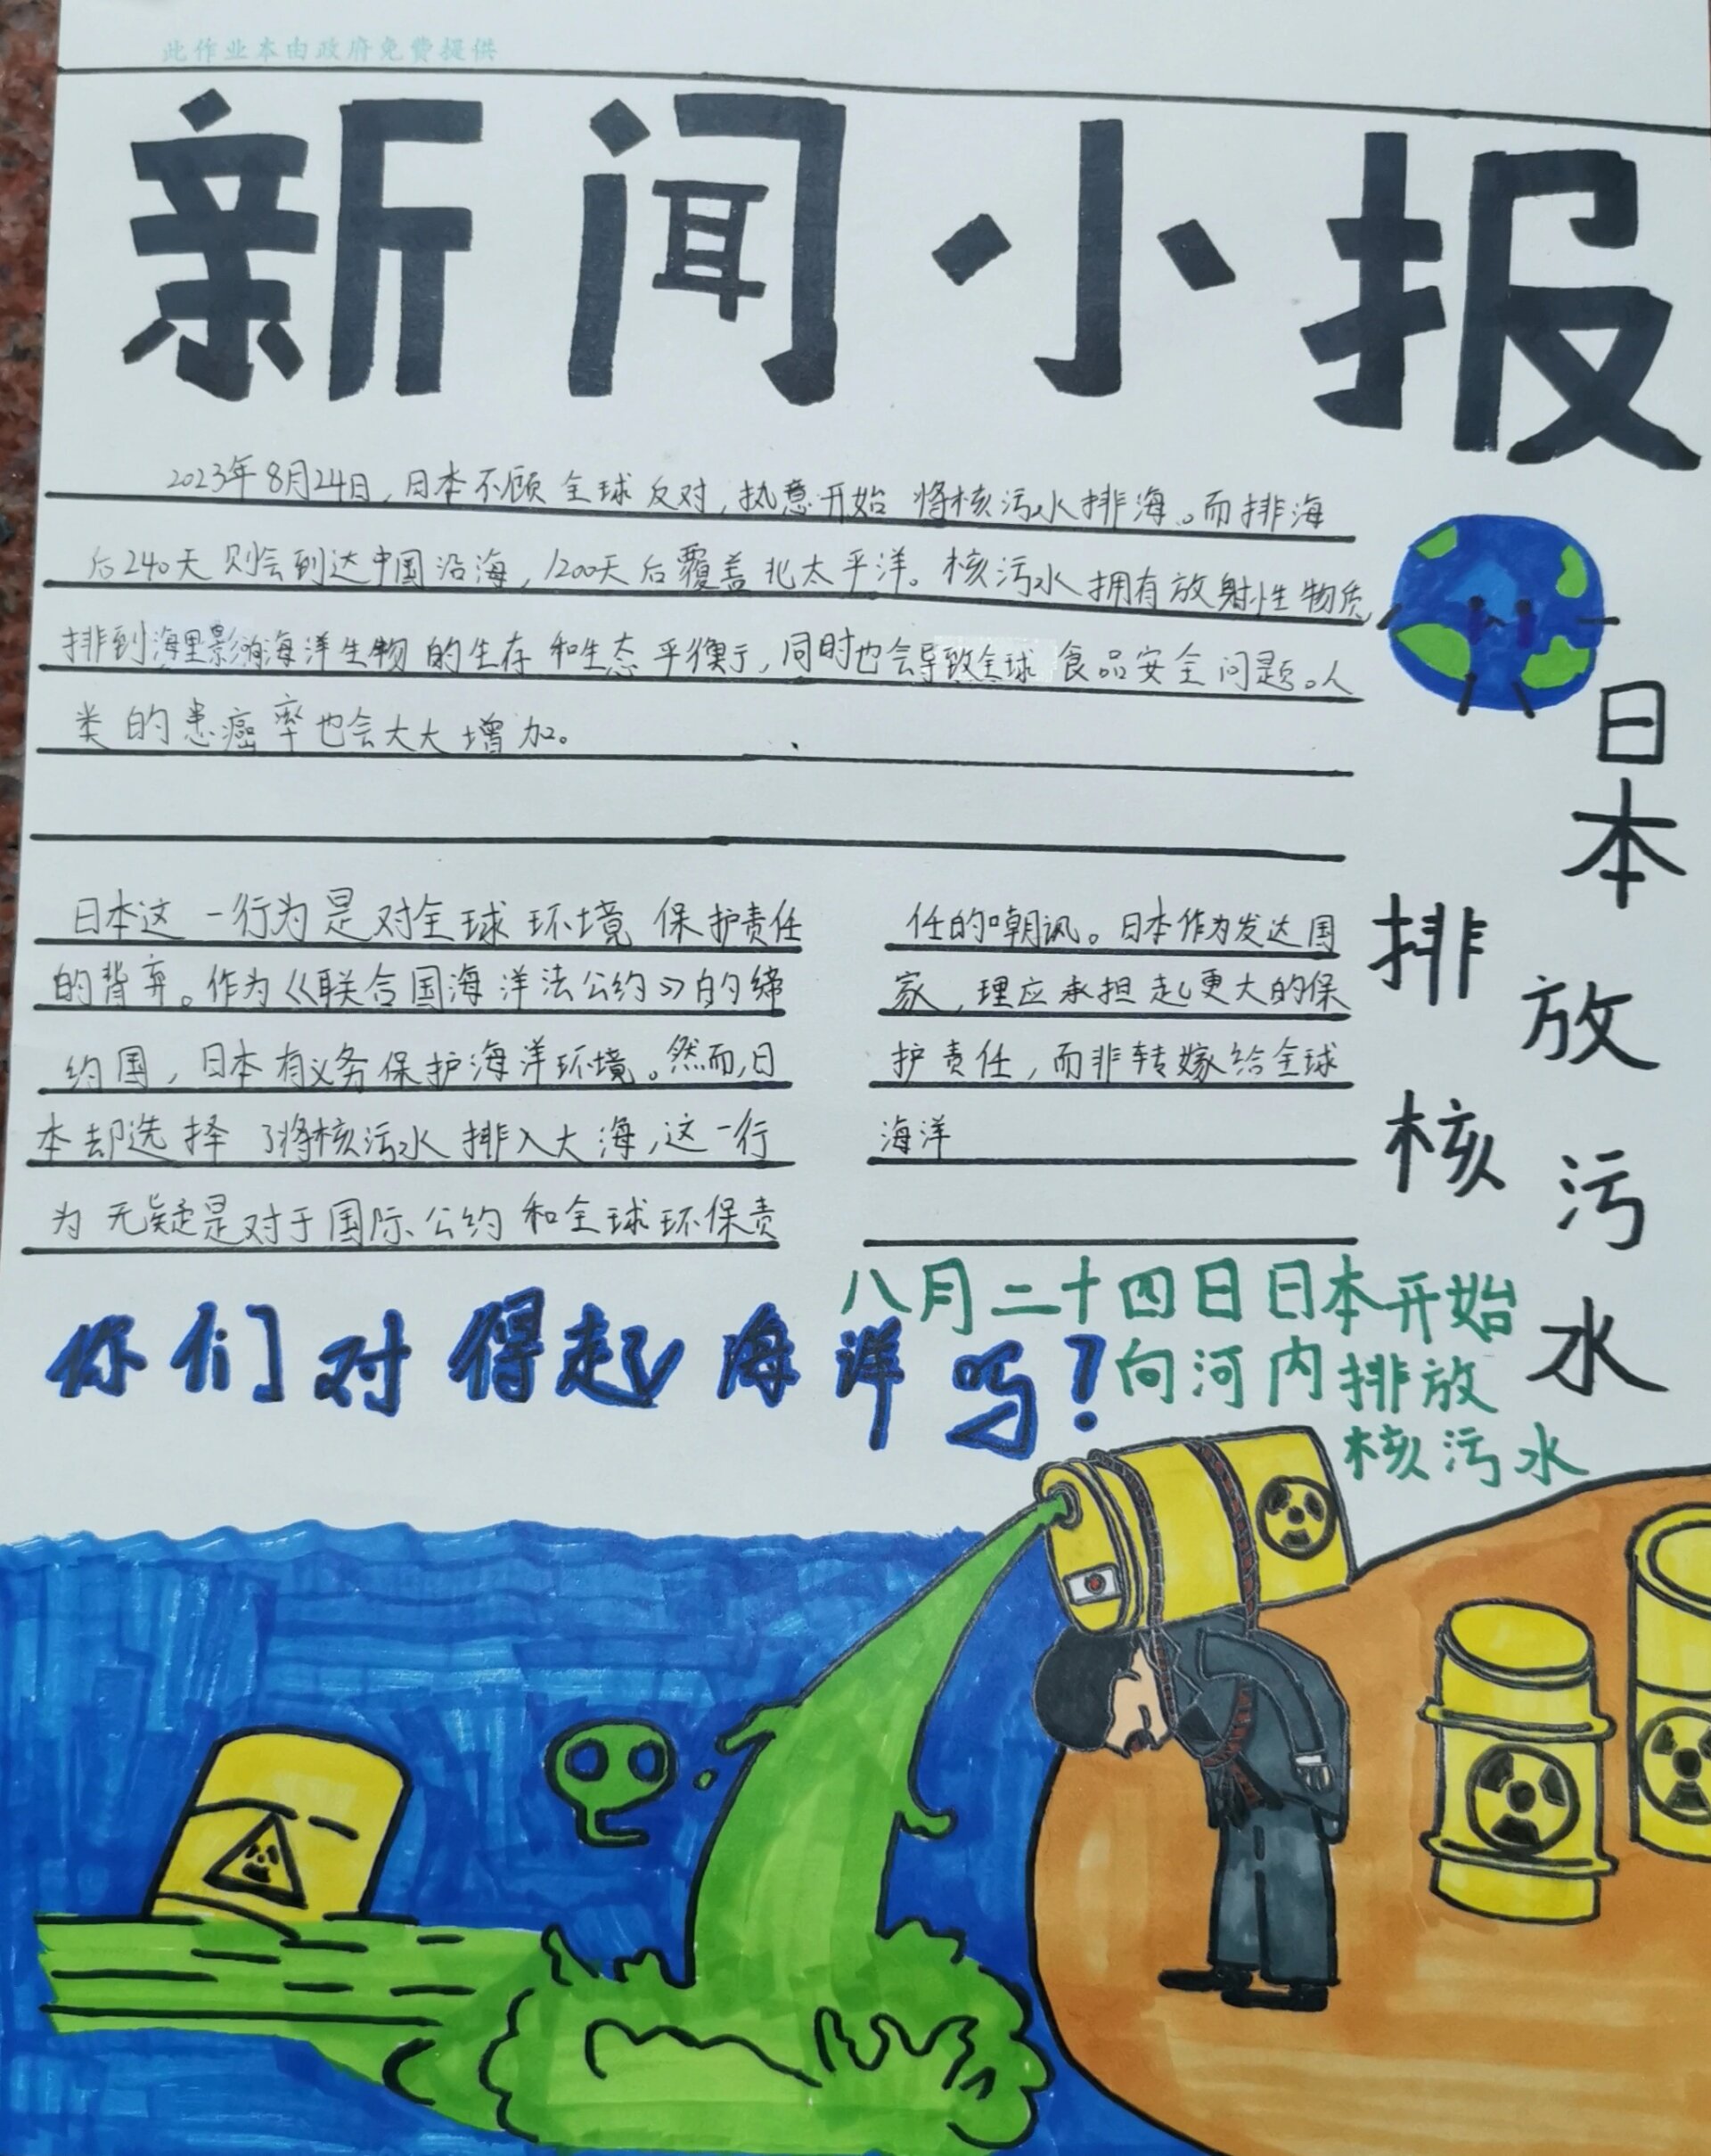 此作业本由政府免费提供
新闻小报
2023年8月24日,日本不顾全球反对,执意开始将核污水排海。而排海
后240天则会到达中国沿海,1200天后覆盖北太平洋。核污水拥有放射性物质,
排到海里影响海洋生物的生存和生态平衡于,同时也会导致全球食品安全问题。人
类的患癌率也会大大增加。
日本这一行为是对全球环境保护责任
的背弃。作为《联合国海洋法公约》的缔
约国,日本有义务保护海洋环境。然而,日
本却选择了将核污水排入大海,这一行
为无疑是对于国际公约和全球环保责
任的嘲讽。日本作为发达国
家,理应承担起更大的保
护责任,而非转嫁给全球
海洋
日本
排放核污水
你们对得起海洋吗?
八月二十四日日本开始
向河内排放
核污水